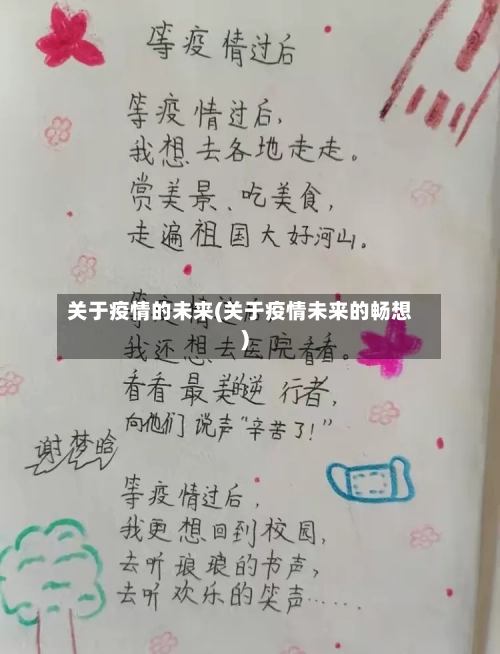 等疫情过后
等疫情过后，
我想去各地走走。
赏美景、吃美食，
走遍祖国大好河山。
关于疫情的未来(关于疫情未来的畅想
)
等疫情过后
我还想去医院看看。
看看最美的逆行者，
向他们说声“辛苦了！”
谢梦晗
等疫情过后，
我更想回到校园，
去听琅琅的书声，
去听欢乐的笑声……